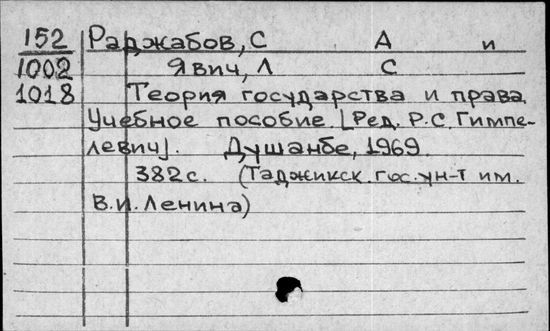 152 Раджабов, С А и
1002 Явич, Л С
1018 Теория государства и права.
Учебное пособие. [Ред. Р.С. Гимпе-
левич]. Душанбе, 1969.
382 с. (Таджикск. гос. ун-т им.
В.И. Ленина)